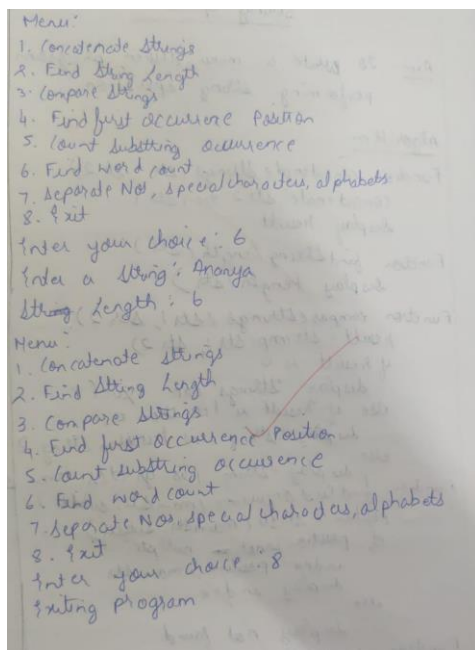 Menu:
1. Concatenate Strings
2. Find String Length
3. Compare Strings
4. Find first occurrence Position
5. Count substring occurrence
6. Find word count
7. Separate Nos, special characters, alphabets
8. Exit
Enter your choice: 6
Enter a string: Ananya
String Length: 6
Menu:
1. Concatenate strings
2. Find String Length
3. Compare Strings
4. Find first occurrence Position
5. Count substring occurrence
6. Find word count
7. Separate Nos, special characters, alphabets
8. Exit
Enter your choice: 8
Exiting program